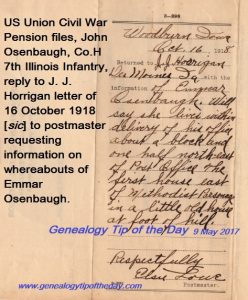 US Union Civil War
Pension files, John
Osenbaugh, Co.H
7th Illinois Infantry,
reply to J. J.
Horrigan letter of
16 October 1918
[sic] to postmaster
requesting
information on
whereabouts of
Emmar
Osenbaugh.
3-296
Woodburn Iowa
Oct. 16, 1918
Returned to J. J. Horrigan
Des Moines Ia.
information of Emmar
Osenbaugh. Will
say she lives within
delivery of this office
about a block and
one half northeast
of Post Office. The
first house east
of Methodist Parsonage
in a little old house
at foot of hill
Genealogy Tip of the Day 9 May 2017
Respectfully
Postmaster.
www.genealogytipoftheday.com